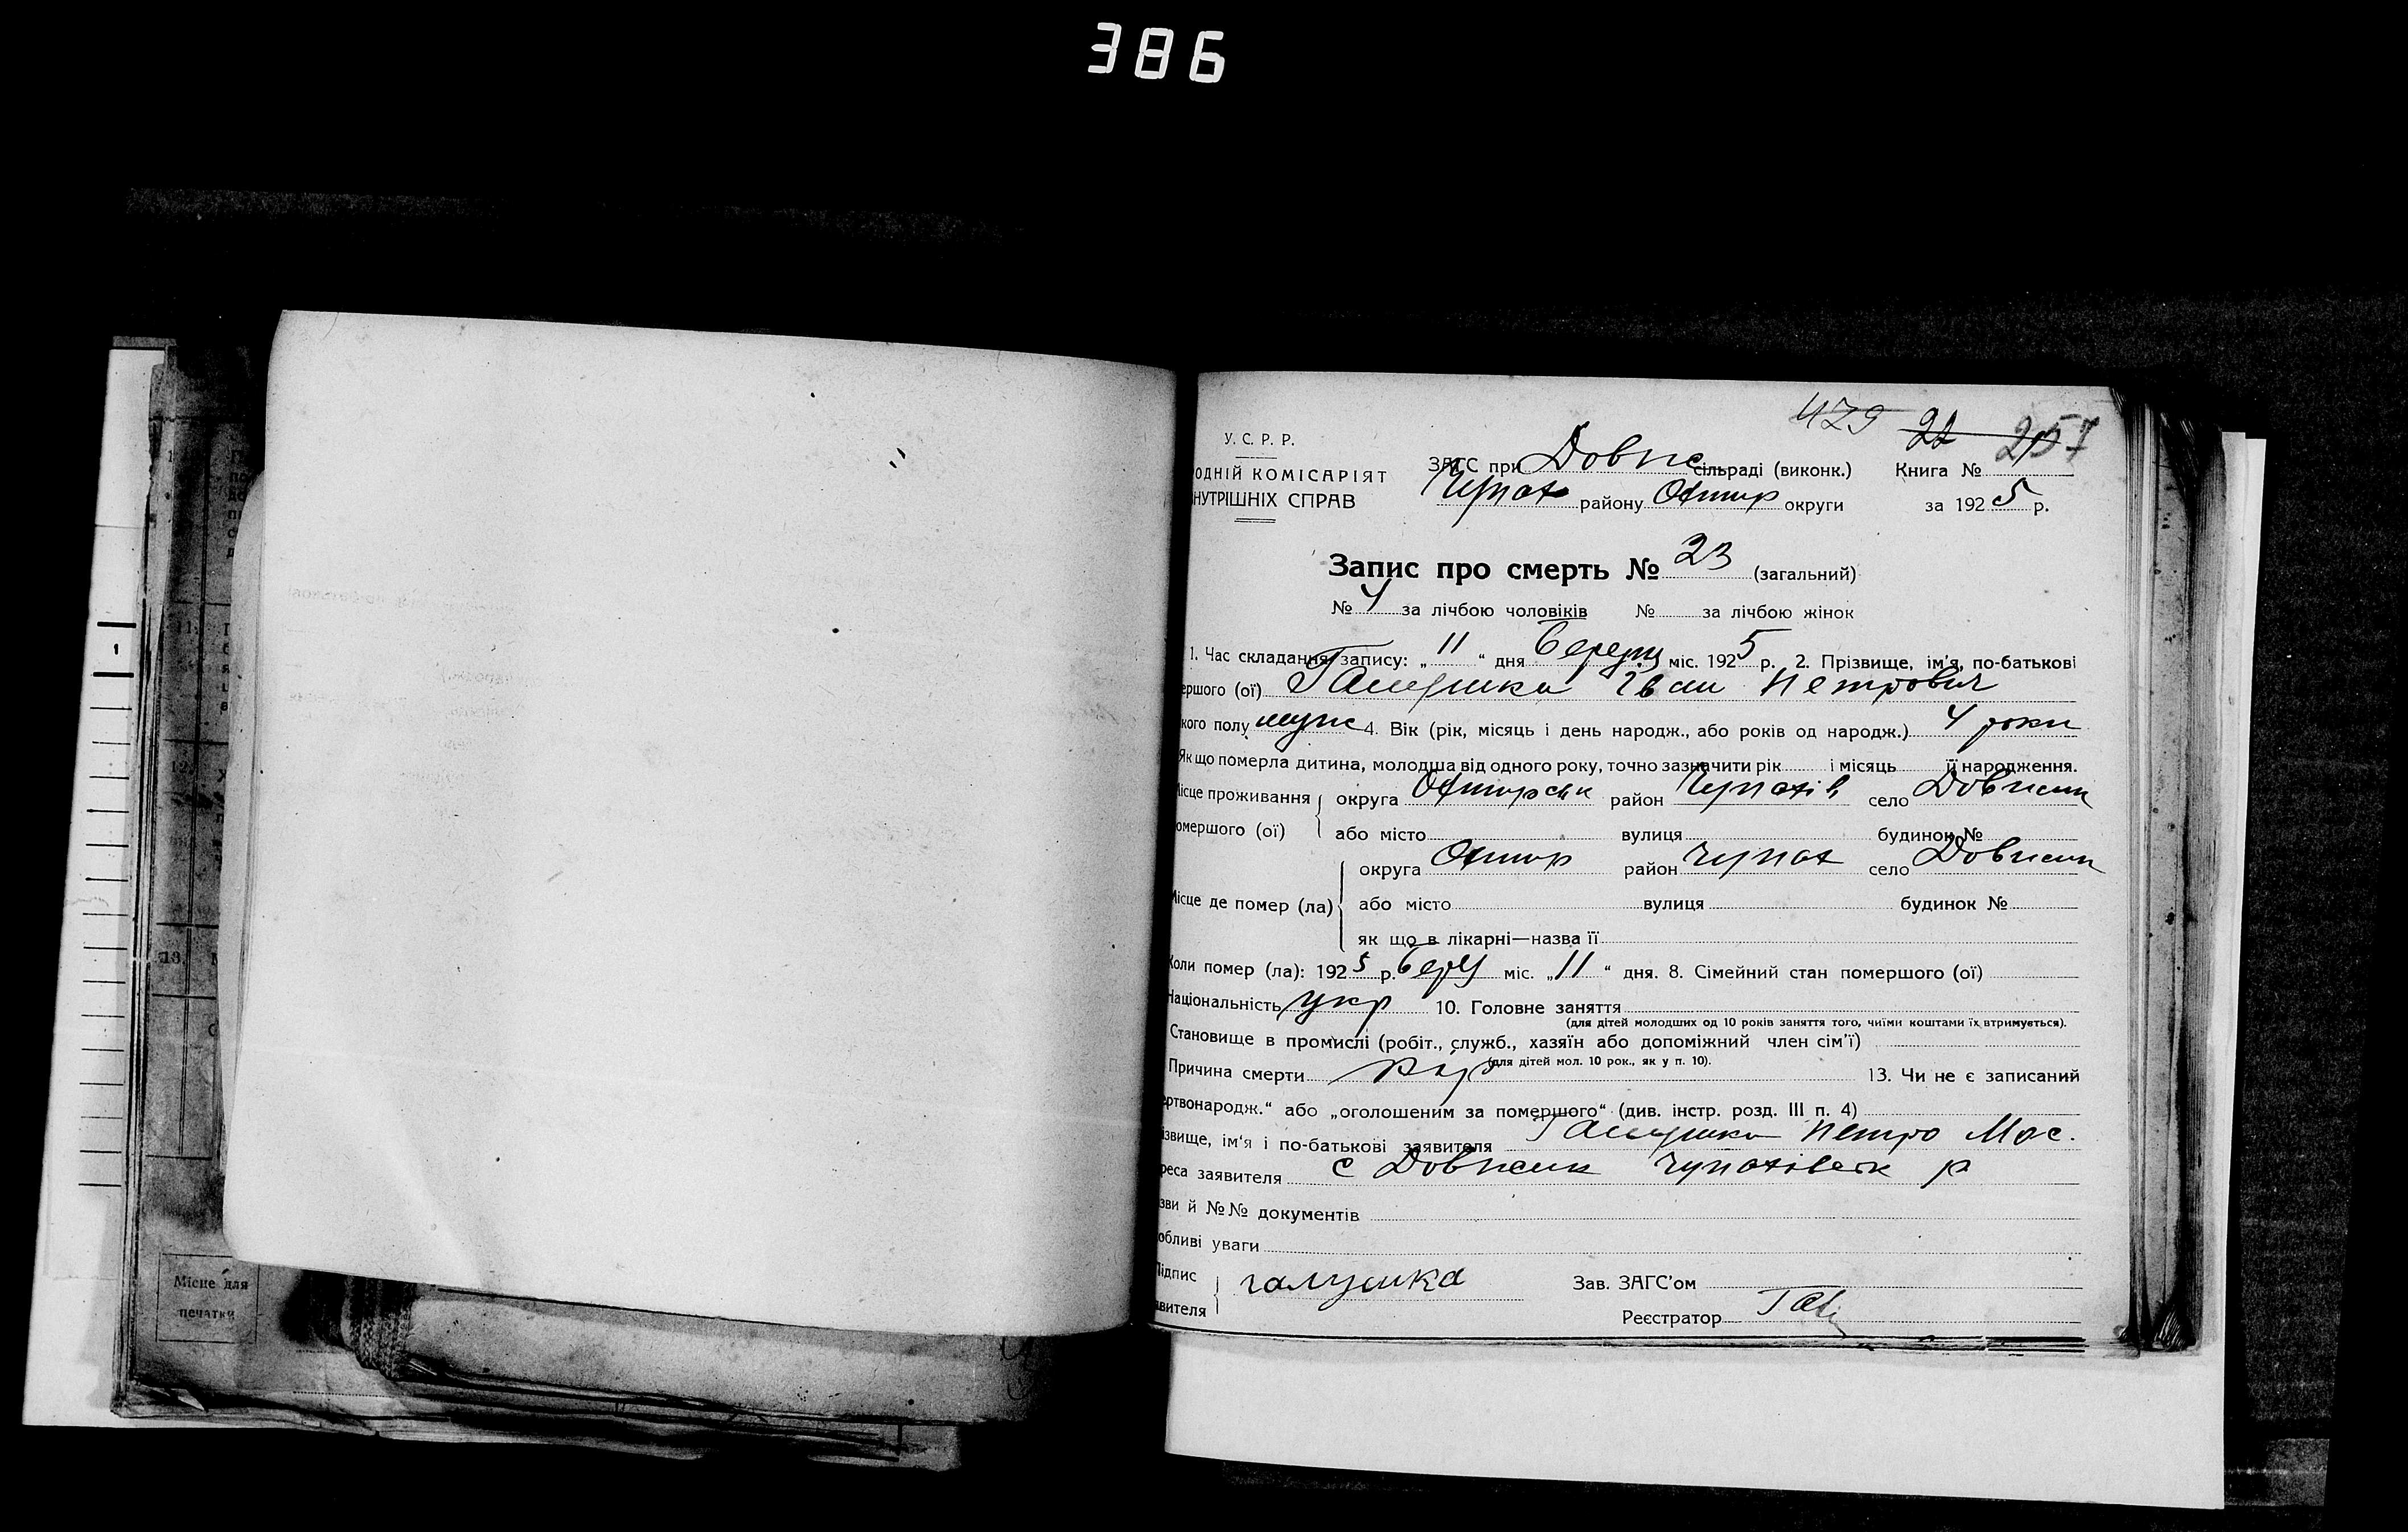 386
429 22 257
У. С. Р. Р.
ОДНІЙ КОМІСАРІЯТ
НУТРІШНІХ СПРАВ
ЗАГС при Довж сільраді (виконк.) Книга №
Чупах району Охтир округи за 1925 р.
Запис про смерть № 23 (загальний)
№ 4 за лічбою чоловіків № за лічбою жінок
1. Час складання запису: „ 11 “ дня березц міс. 1925 р. 2. Прізвище, ім'я, по-батькові
ершого (ої) Галушка Іван Петрович
кого полу муж 4. Вік (рік, місяць і день народж., або років од народж.) 4 роки
Як що померла дитина, молодша від одного року, точно зазначити рік і місяць її народження.
Місце проживання округа Охтирськ район Чупахів село Довжик
омершого (ої) або місто вулиця будинок №
округа Охтир район Чупах село Довжик
Місце де помер (ла) або місто вулиця будинок №
як що в лікарні—назва її
Коли помер (ла): 1925 р. бер міс. „ 11 “ дня. 8. Сімейний стан помершого (ої)
Національність укр 10. Головне заняття
(для дітей молодших од 10 років заняття того, чиїми коштами їх втримується).
Становище в промислі (робіт., служб., хазяїн або допоміжний член сім'ї)
(для дітей мол. 10 рок., як у п. 10).
Причина смерти 13. Чи не є записаний
ертвонародж.“ або „оголошеним за помершого“ (див. інстр. розд. III п. 4)
ізвище, ім'я і по-батькові заявителя Галушка Петро Мос.
реса заявителя с Довжик Чупахівськ р
зви й №№ документів
обливі уваги
Підпис
явителя галушка
Зав. ЗАГС'ом
Реєстратор
Місце для
печатки
11.
12.
13.
1